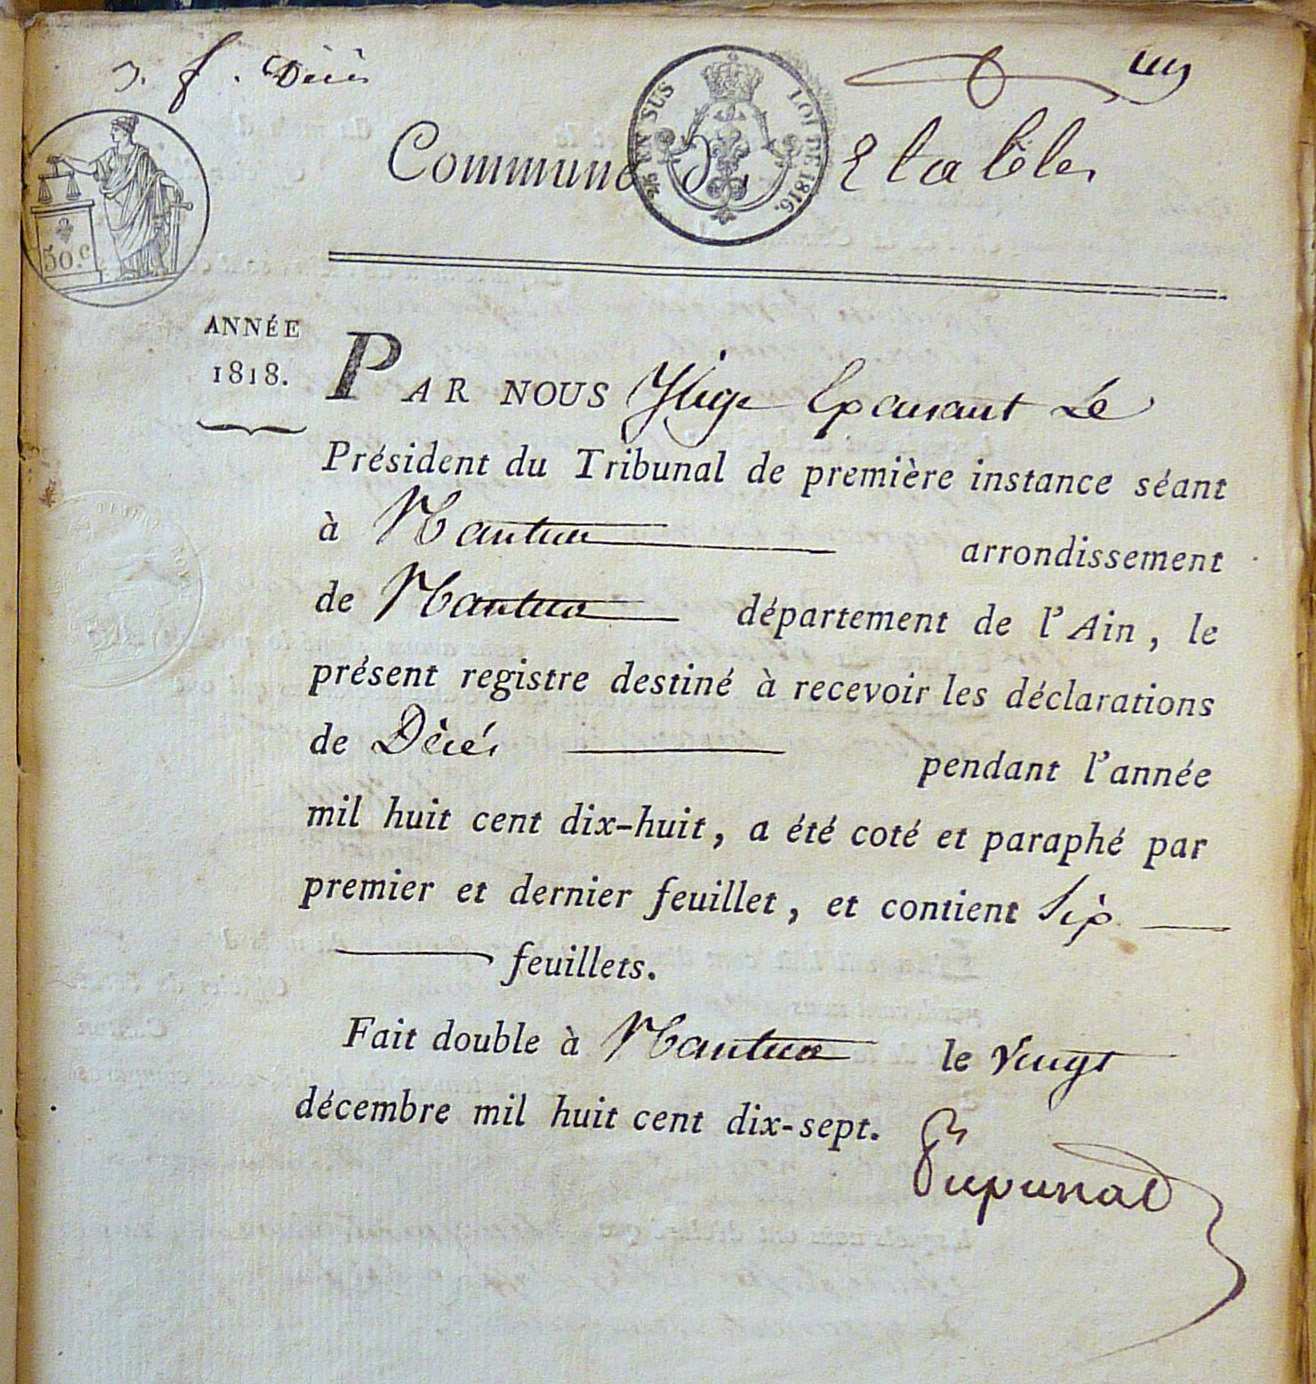 3. f. Décès
25 EN SUS LOI DE 1816.
Commune d' Etables
50.c
ANNÉE
1818.
PAR NOUS Juge Exposant Le
Président du Tribunal de première instance séant
à Nantua arrondissement
de Nantua département de l'Ain, le
présent registre destiné à recevoir les déclarations
de Décés pendant l'année
mil huit cent dix-huit, a été coté et paraphé par
premier et dernier feuillet, et contient Six
feuillets.
Fait double à Nantua le Vingt
décembre mil huit cent dix-sept.